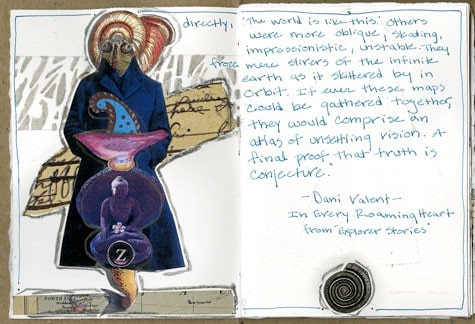 directly,
froze
"The world is like this." Others
were more oblique, skating,
impressionistic, unstable. They
were slivers of the infinite
earth as it skittered by in
orbit. If ever these maps
could be gathered together,
they would comprise an
atlas of unsettling vision. A
final proof that truth is
conjecture.
-Dani Valent-
In Every Roaming Heart
from "Explorer Stories"
Z